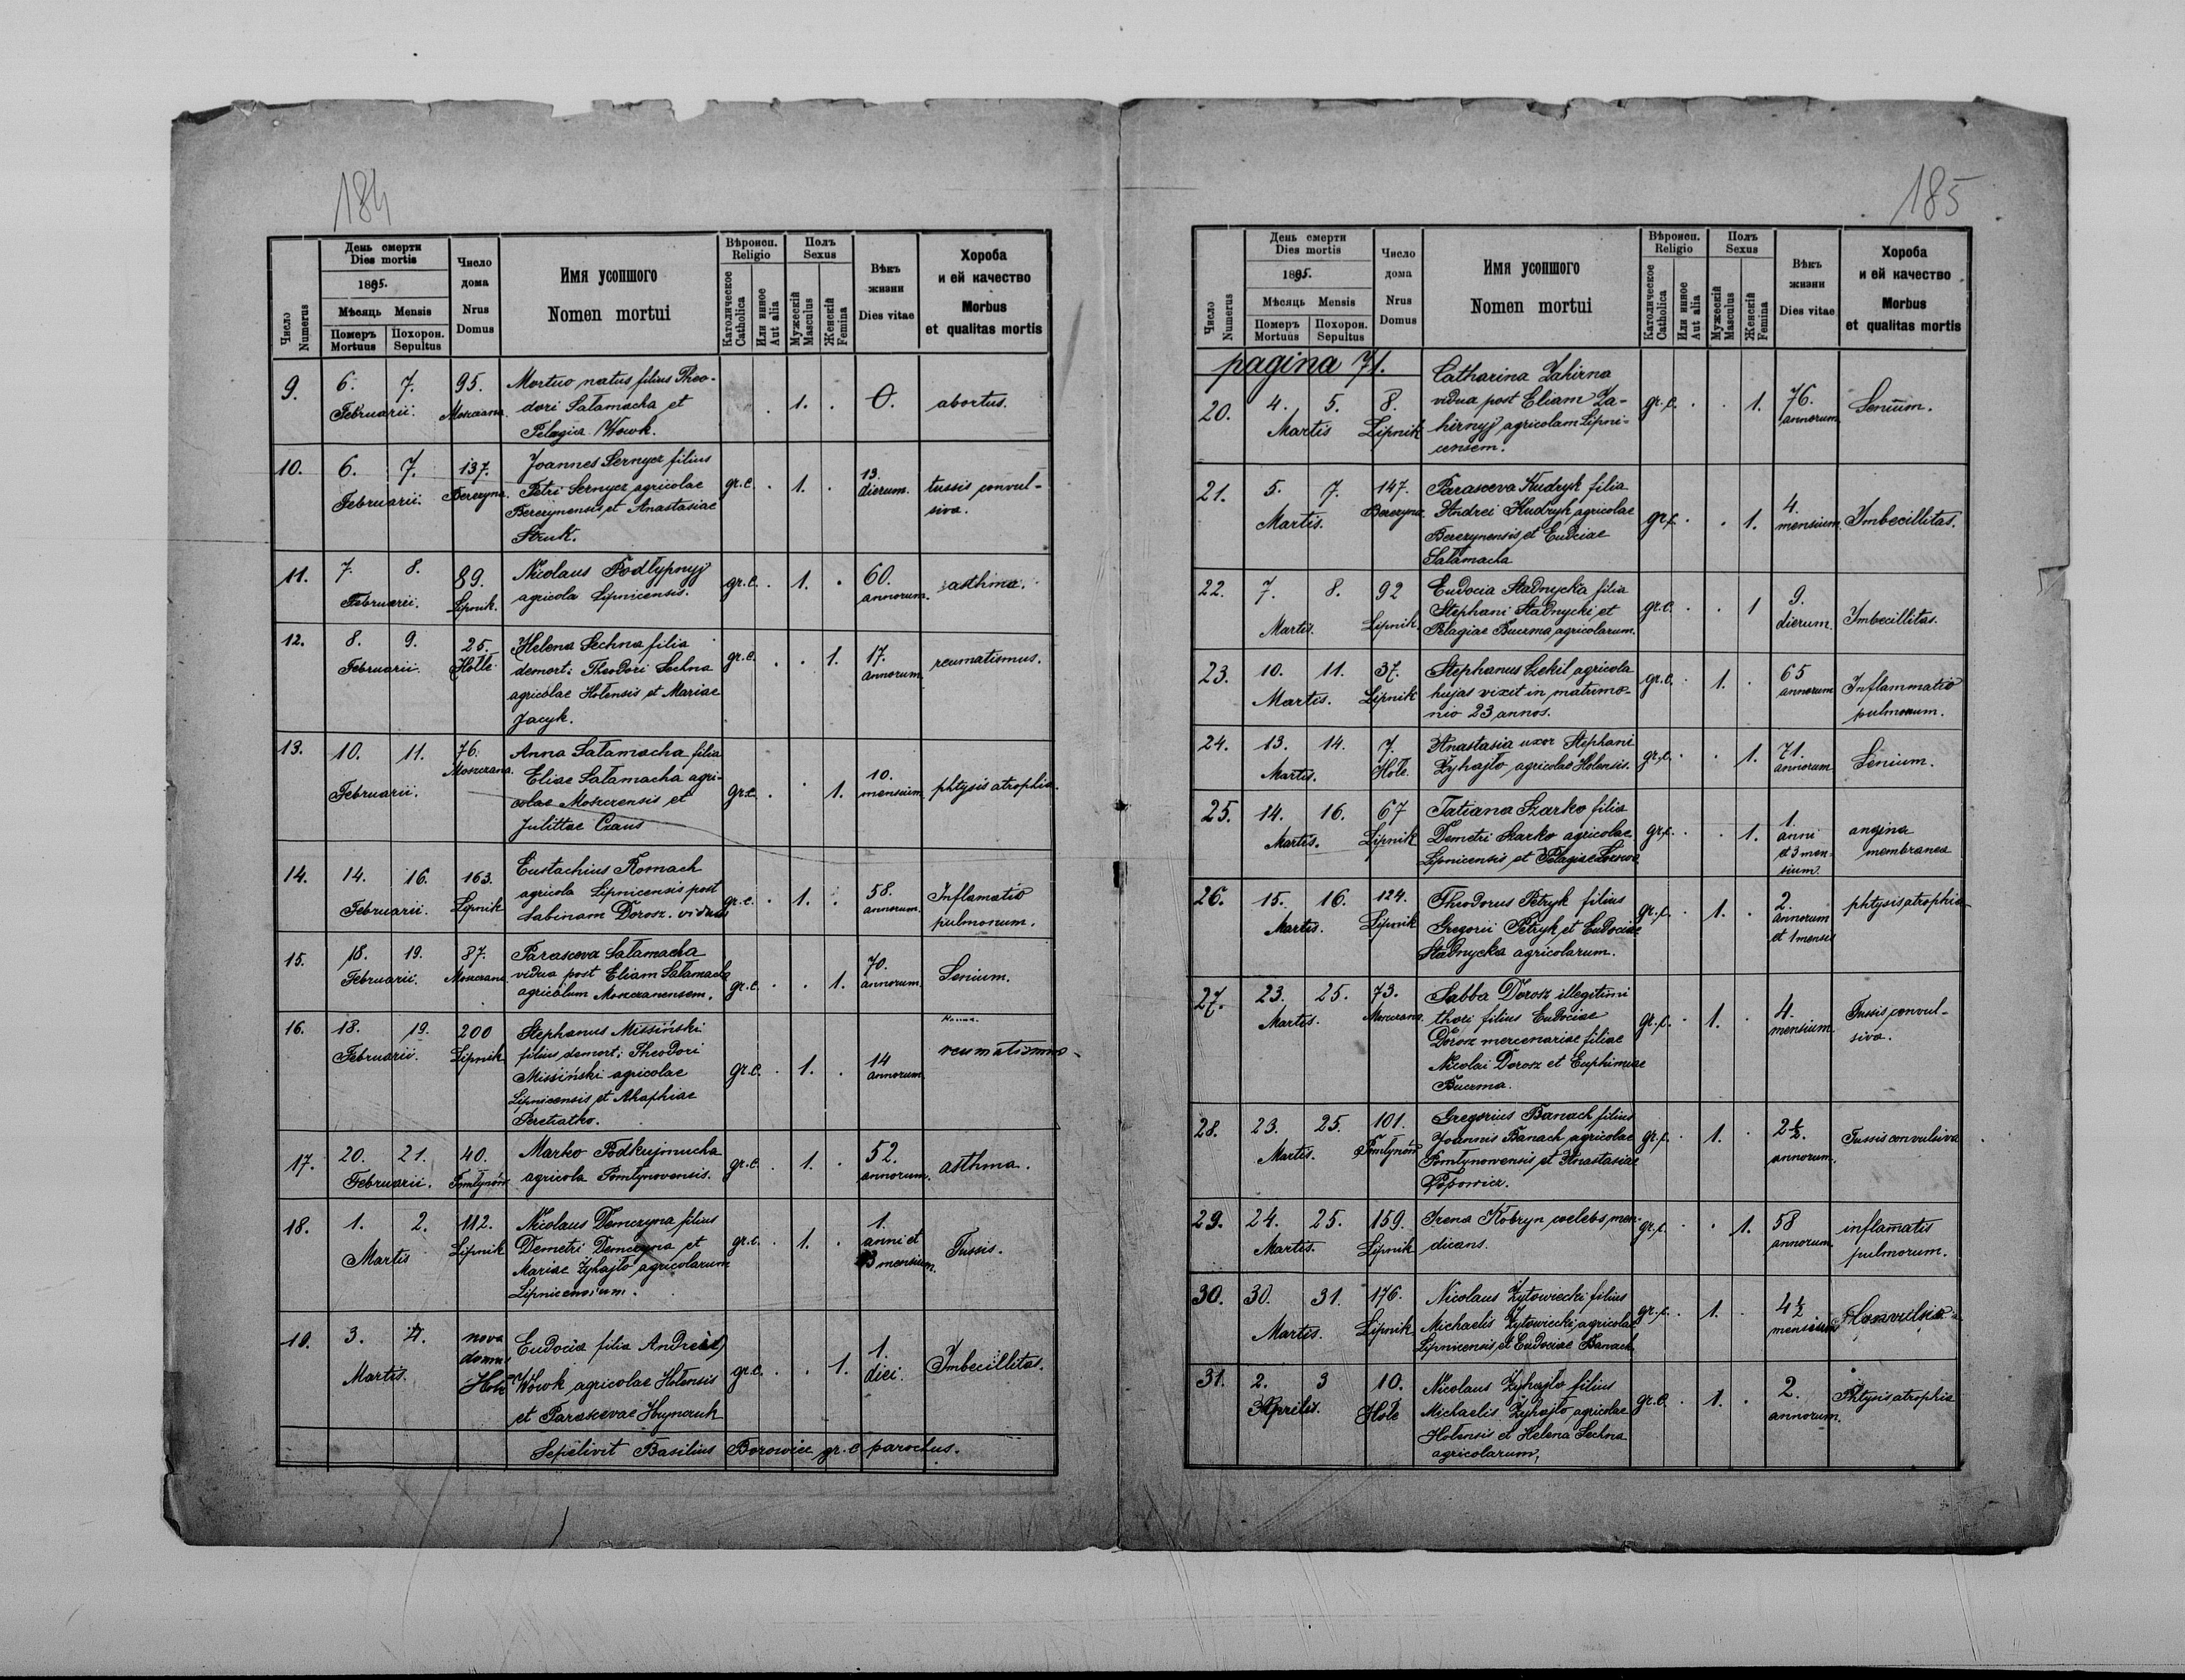 184
День смерти
Dies mortis
1895.
Мѣсяць Mensis
Число
Numerus
Померъ
Mortuus
Похорон.
Sepultus
Число
дома
Nrus
Domus
Имя усопшого
Nomen mortui
Вѣроисп.
Religio
Католическое
Catholica
Или инное
Aut alia
Полъ
Sexus
Мужескій
Masculus
Женскій
Femina
Вѣкъ
жизни
Dies vitae
Хороба
и ей качество
Morbus
et qualitas mortis
9. 6. 7. 95. Mortuo natus filius Theo-
Februarii. Moszczana. dori Sałamacha et 1. 0. abortus.
Pelagia Wowk.
10. 6. 7. 137. Joannes Sernycz filius
Februarii. Berezyna. Petri Sernycz agricolae gr.c. 1. 13. dierum. tussis convul-
Berezynensis et Anastasiae siva.
Struk.
11. 7. 8. 89. Nicolaus Podłypnyj gr.c. 1. 60. asthma.
Februarii. Lipnik. agricola Lipnicensis. annorum.
12. 8. 9. 25. Helena Sechna filia
Februarii. Hołe demort: Theodori Sechna gr.c. 1. 17. annorum. reumatismus.
agricolae Holensis et Mariae
Jacyk.
13. 10. 11. 76. Anna Sałamacha filia
Februarii. Moszczana. Eliae Sałamacha agri- gr.c. 1. 10. mensium phtysis atrophia.
colae Moszczensis et
Julittae Czaus
14. 14. 16. 163. Eustachius Romach
Februarii. Lipnik agricola Lipnicensis post gr.c. 1. 58. annorum. Inflamatio
Sabinam Dorosz. viduus pulmonum.
15. 18. 19. 87. Parasceva Sałamacha
Februarii. Moszczana vidua post Eliam Sałamacha gr.c. 1. 70. annorum. Senium.
agricolam Moszczanensem.
16. 18. 19. 200 Stephanus Missiński
Februarii. Lipnik filius demort: Theodori gr.c. 1. 14 annorum. reumatismus
Missiński agricolae
Lipnicensis et Ahaphiae
Peretiatko.
17. 20. 21. 40. Marko Podkujmucha gr.c. 1. 52. asthma.
Februarii. Pomłynów agricola Pomłynovensis. annorum.
18. 1. 2. 112. Nicolaus Demczyna filius
Martis Lipnik Demetri Demczyna et gr.c. 1. 1. anni et Tussis.
Mariae Zyhajło agricolarum 3 mensium.
Lipnicensium.
19. 3. 4. nova Eudocia filia Andreae
Martis. domus Wowk agricolae Holensis gr.c. 1. 1. diei. Imbecillitas.
Hołe et Parascevae Hrynczuk
Sepelivit Basilius Borowiec gr.c parochus.
185
День смерти
Dies mortis
1895.
Мѣсяць Mensis
Число
Numerus
Померъ
Mortuus
Похорон.
Sepultus
Число
дома
Nrus
Domus
Имя усопшого
Nomen mortui
Вѣроисп.
Religio
Католическое
Catholica
Или инное
Aut alia
Полъ
Sexus
Мужескій
Masculus
Женскій
Femina
Вѣкъ
жизни
Dies vitae
Хороба
и ей качество
Morbus
et qualitas mortis
pagina 71.
Catharina Zahirna
20. 4. 5. 8. vidua post Eliam Za- gr.c. 1. 76. Senium.
Martis Lipnik hirnyj agricolam Lipni- annorum
censem.
21. 5. 7. 147. Parasceva Kudryk filia
Martis. Berezyna. Andrei Kudryk agricolae gr.c. 1. 4. mensium. Imbecillitas.
Berezynensis et Eudciae
Sałamacha
22. 7. 8. 92 Eudocia Stadnycka filia
Martis. Lipnik. Stephani Stadnycki et gr.c. 1 9. dierum. Imbecillitas.
Pelagiae Buczma agricolarum.
23. 10. 11. 37. Stephanus Szekil agricola
Martis. Lipnik hujas vixit in matrimo- gr.c. 1. 65 annorum Inflammatio
nio 23 annos. pulmonum.
24. 13. 14. 7. Anastasia uxor Stephani
Martis. Hołe. Zyhajło agricolae Holensis. gr.c. 1. 71. annorum Senium.
25. 14. 16. 67 Tatiana Szarko filia
Martis. Lipnik Demetri Szarko agricolae gr.c. 1. 1. anni angina
Lipnicensis et Pelagiae et 3 men- membranea
sium.
26. 15. 16. 124. Theodorus Petryk filius
Martis. Lipnik Gregorii Petryk et Eudociae gr.c. 1. 2. annorum phtysis atrophia
Stadnycka agricolarum. et 1 mensis
27. 23. 25. 73. Sabba Dorosz illegitimi
Martis. Moszczana thori filius Eudociae gr.c. 1. 4. mensium. Tussis convul-
Dorosz mercenariae filiae siva.
Nicolai Dorosz et Euphimiae
Buczma.
28. 23. 25. 101. Gregorius Banach filius
Martis. Pomłynów Joannis Banach agricolae gr.c. 1. 2½. annorum. Tussis convulsiva
Pomłynowensis et Anastasiae
Popowicz.
29. 24. 25. 159. Irena Kobryn coelebs men- gr.c. 1. 58 inflamatio
Martis. Lipnik dicans. annorum pulmorum.
30. 30. 31. 176. Nicolaus Zytowiecki filius
Martis. Lipnik Michaelis Zytowiecki agricolae gr.c. 1. 4½ mensium Convulsio
Lipnicensis et Eudociae Banach
31. 2. 3 10. Nicolaus Zyhajło filius
Aprilis. Hołe Michaelis Zyhajło agricolae gr.c. 1. 2. annorum. Phtysis atrophia
Holensis et Helena Sechna
agricolarum,